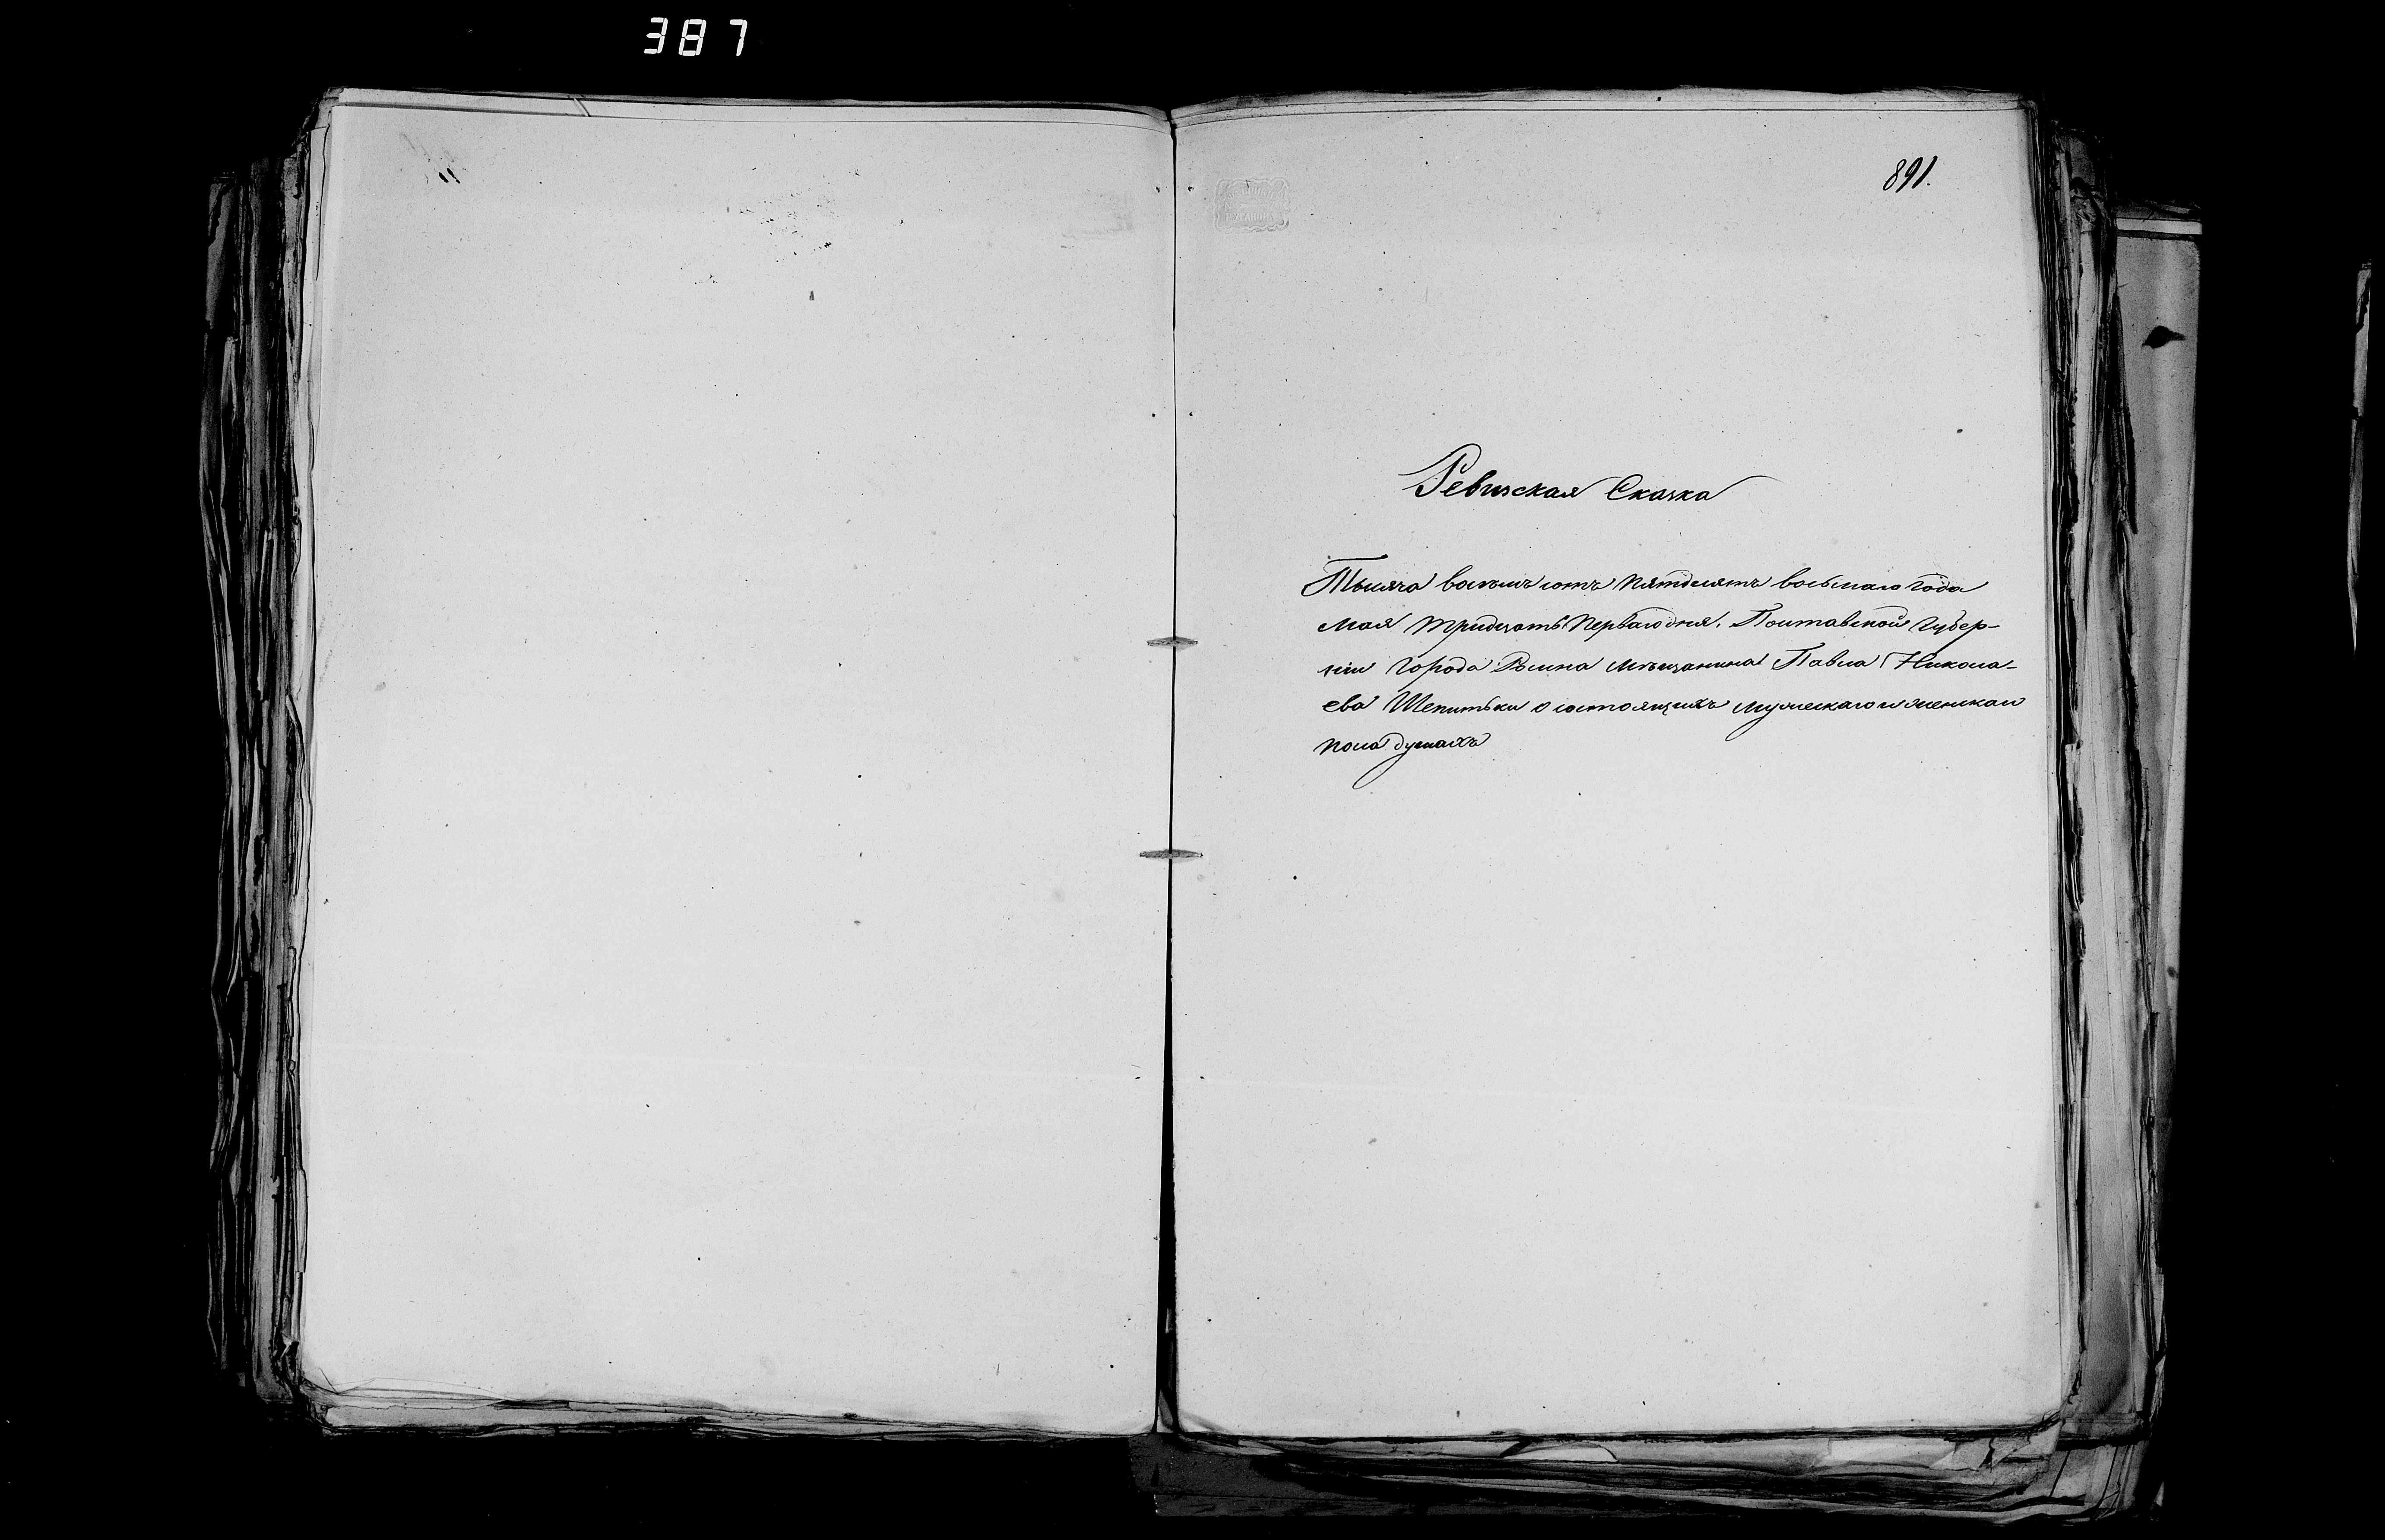 387
891.
Ревизская Сказка
Тысяча восемь сотъ пятдесятъ восьмаго года
мая тридцать перваго дня. Полтавской Губер-
ніи города Ромна мѣщанина Павла Никола-
ева Шепитьки о состоящихъ мужескаго и женскаго
пола душахъ